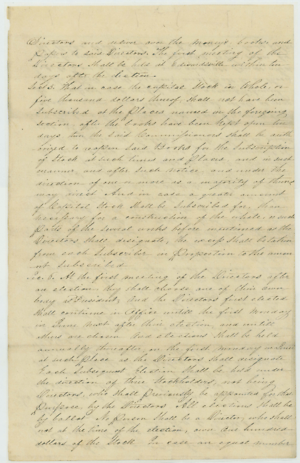 Directors and men over the moneys books and
Papers to said Directors. The first meeting of the
Directors Shall be held at within ten
days after the Election.
Sec 4. That in case the capital Stock in Whole, or
five thousand dollars thereof shall not have been
Subscribed at the places named in the foregoing
section after the books have been kept open ten
days then the said Commissioners shall be auth
orized to reopen Said Books for the Subscription
of Stock at such times and places, and in such
manner, and after such notice, and under the
direction of one or more as a majority of them
may direct. And in case a greater amount
of Capital Stock Shall be Subscribed for, than
necessary for a construction of the whole, or such
parts of the several works before mentioned as the
Directors shall designate, the excess Shall be taken
from each Subscriber in proportion to the amou
nt Subscribed.
At the first meeting of the Directors after
an election they shall choose one of their num
ber as President, and the Directors first elected
Shall continue in Office untill the first monday
in June next after their election, and untill
others are chosen. And elections Shall be held
annually thereafter on the first monday in June
at such place as the Directors shall designate
Each Subsequent Election Shall be held under
the direction of three Stockholders, not being
Directors, who shall previously be appointed for that
purpose by the Directors. All elections shall be
by ballot. No Person Shall be a Director who shall
not at the time of the election, own one hundred
dollars of the Stock. In case an equal number